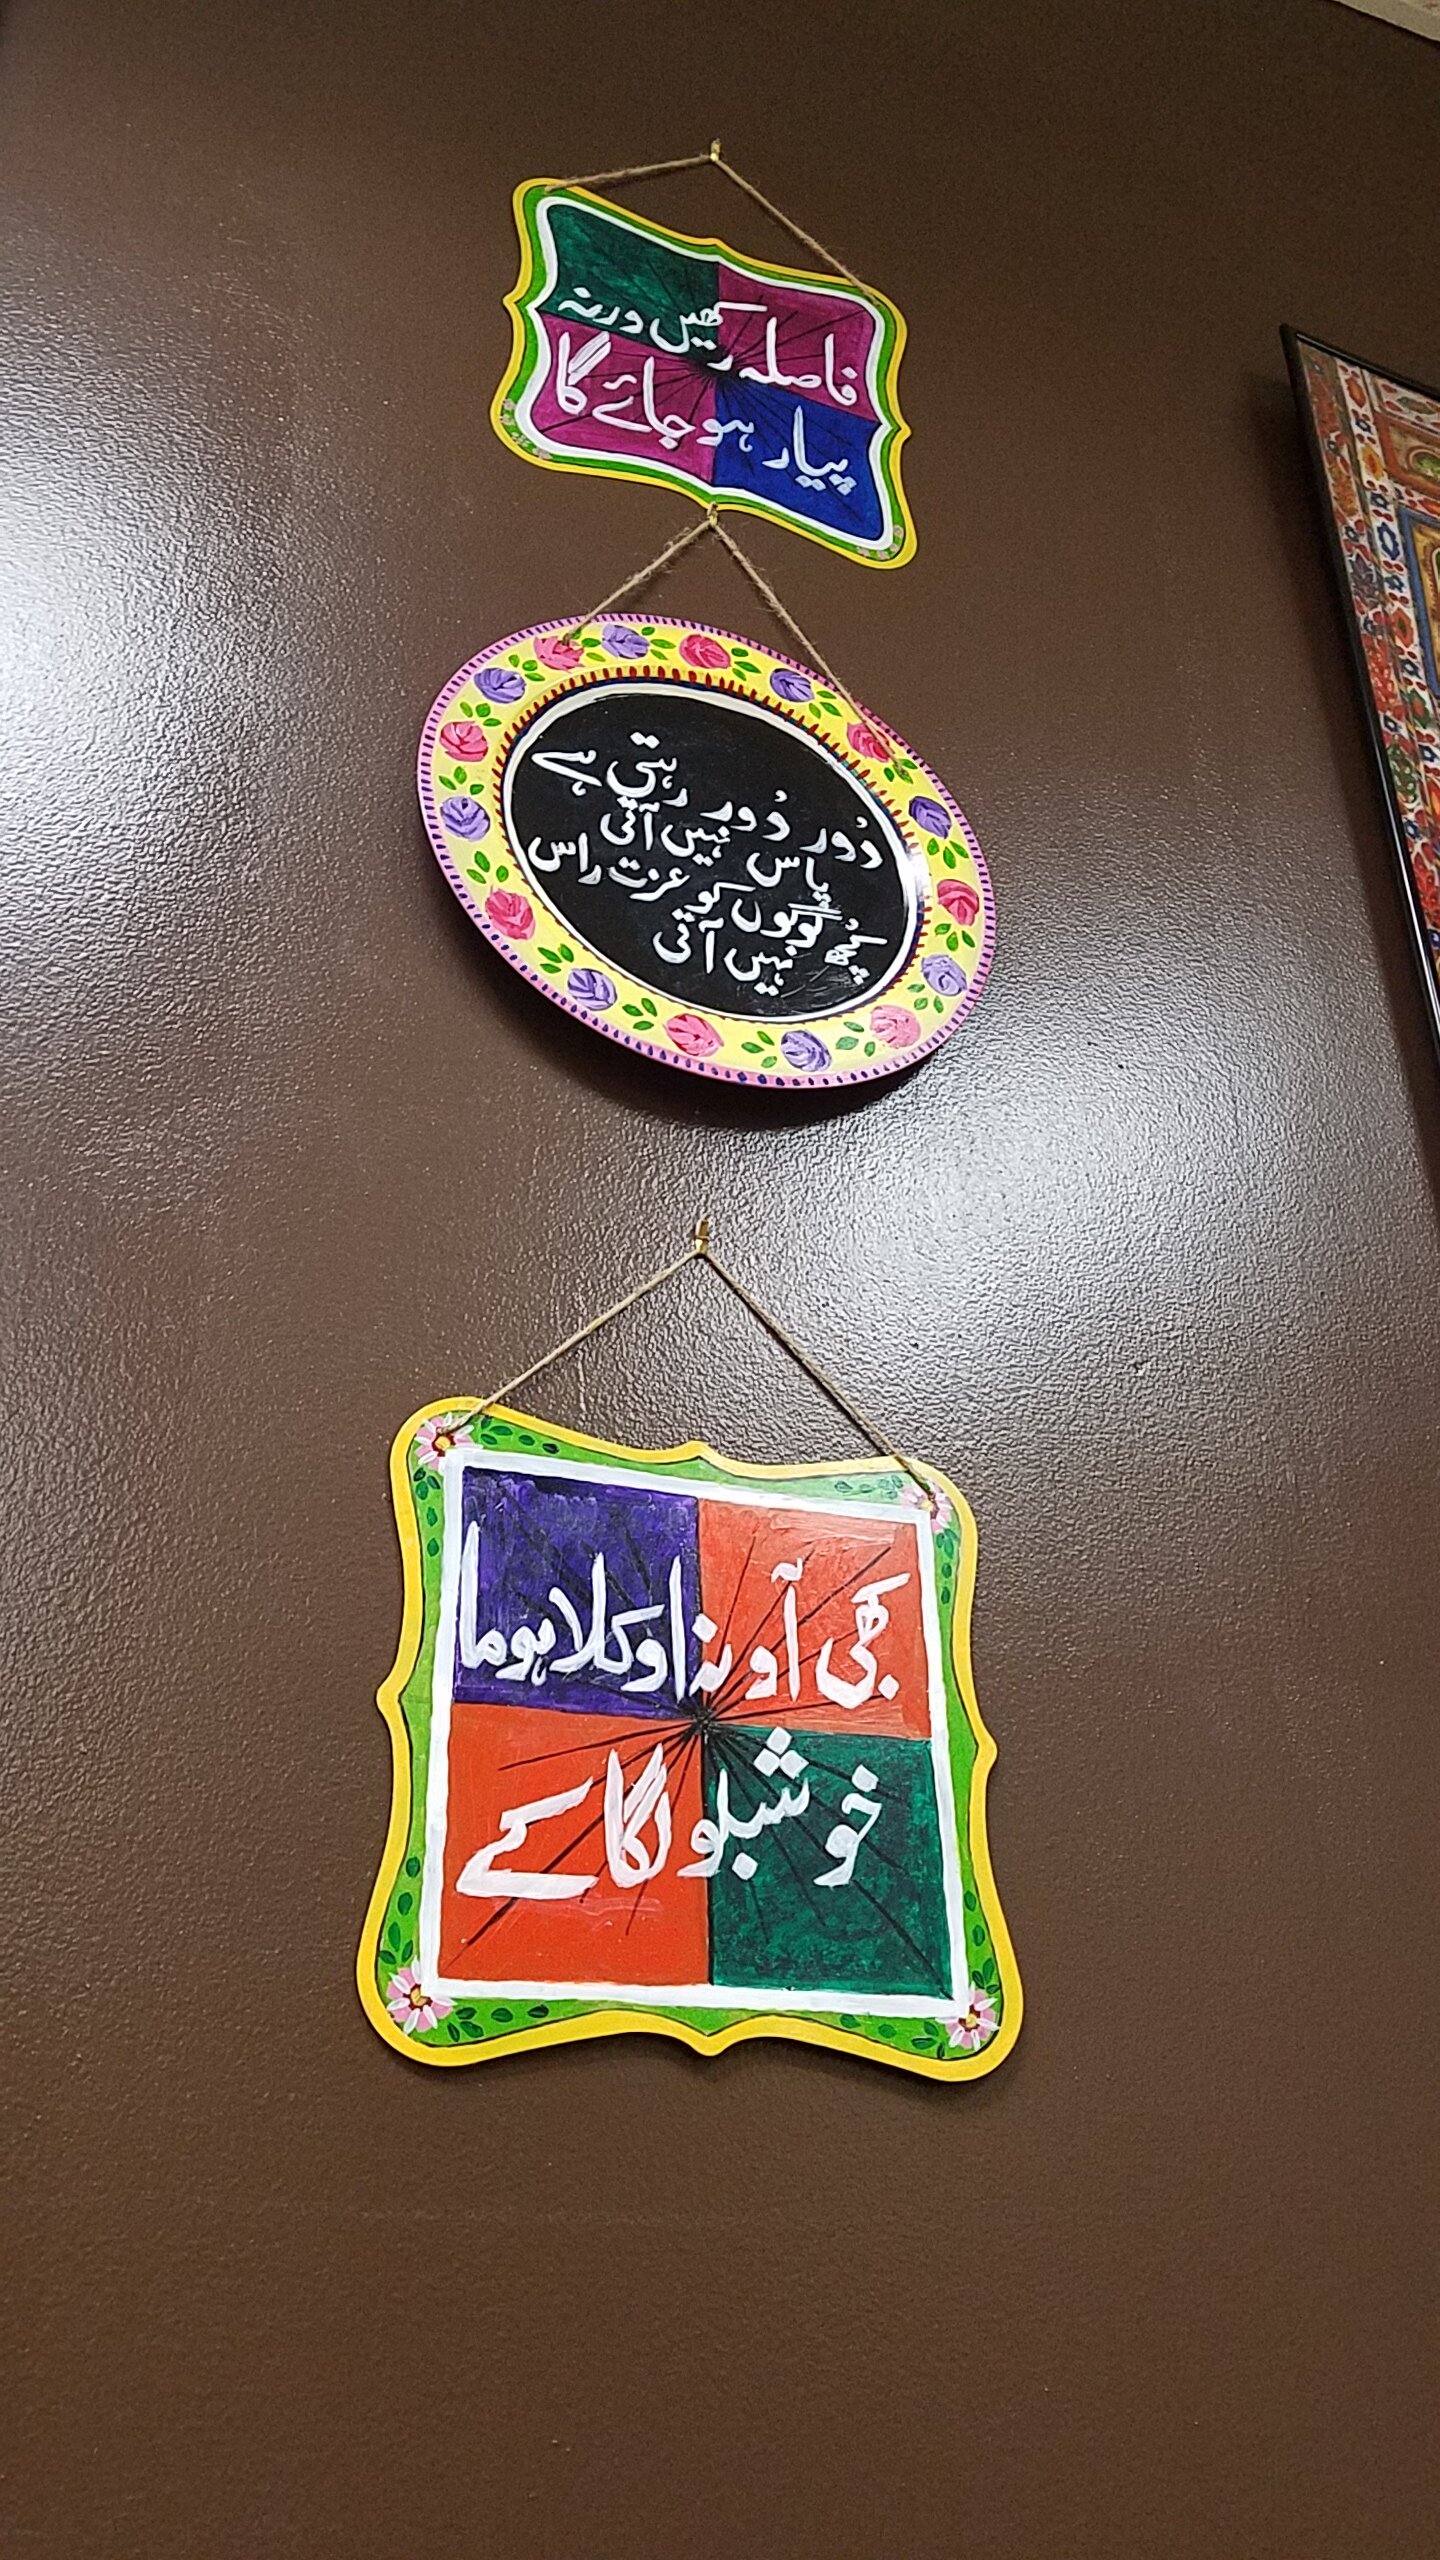 فاصلہ رکھیں ورنہ
پیار ہو جائے گا
دُور دُور رہتی ہے
پاس نہیں آتی
کچھ لوگوں کو عزت راس
نہیں آتی
کبھی آو نہ اوکلاہوما
خوشبو لگا کے